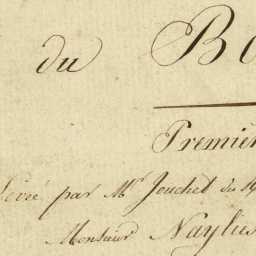 du Bo
Premier
Levé par Mr Jouchet du 19
Monsieur Naylus